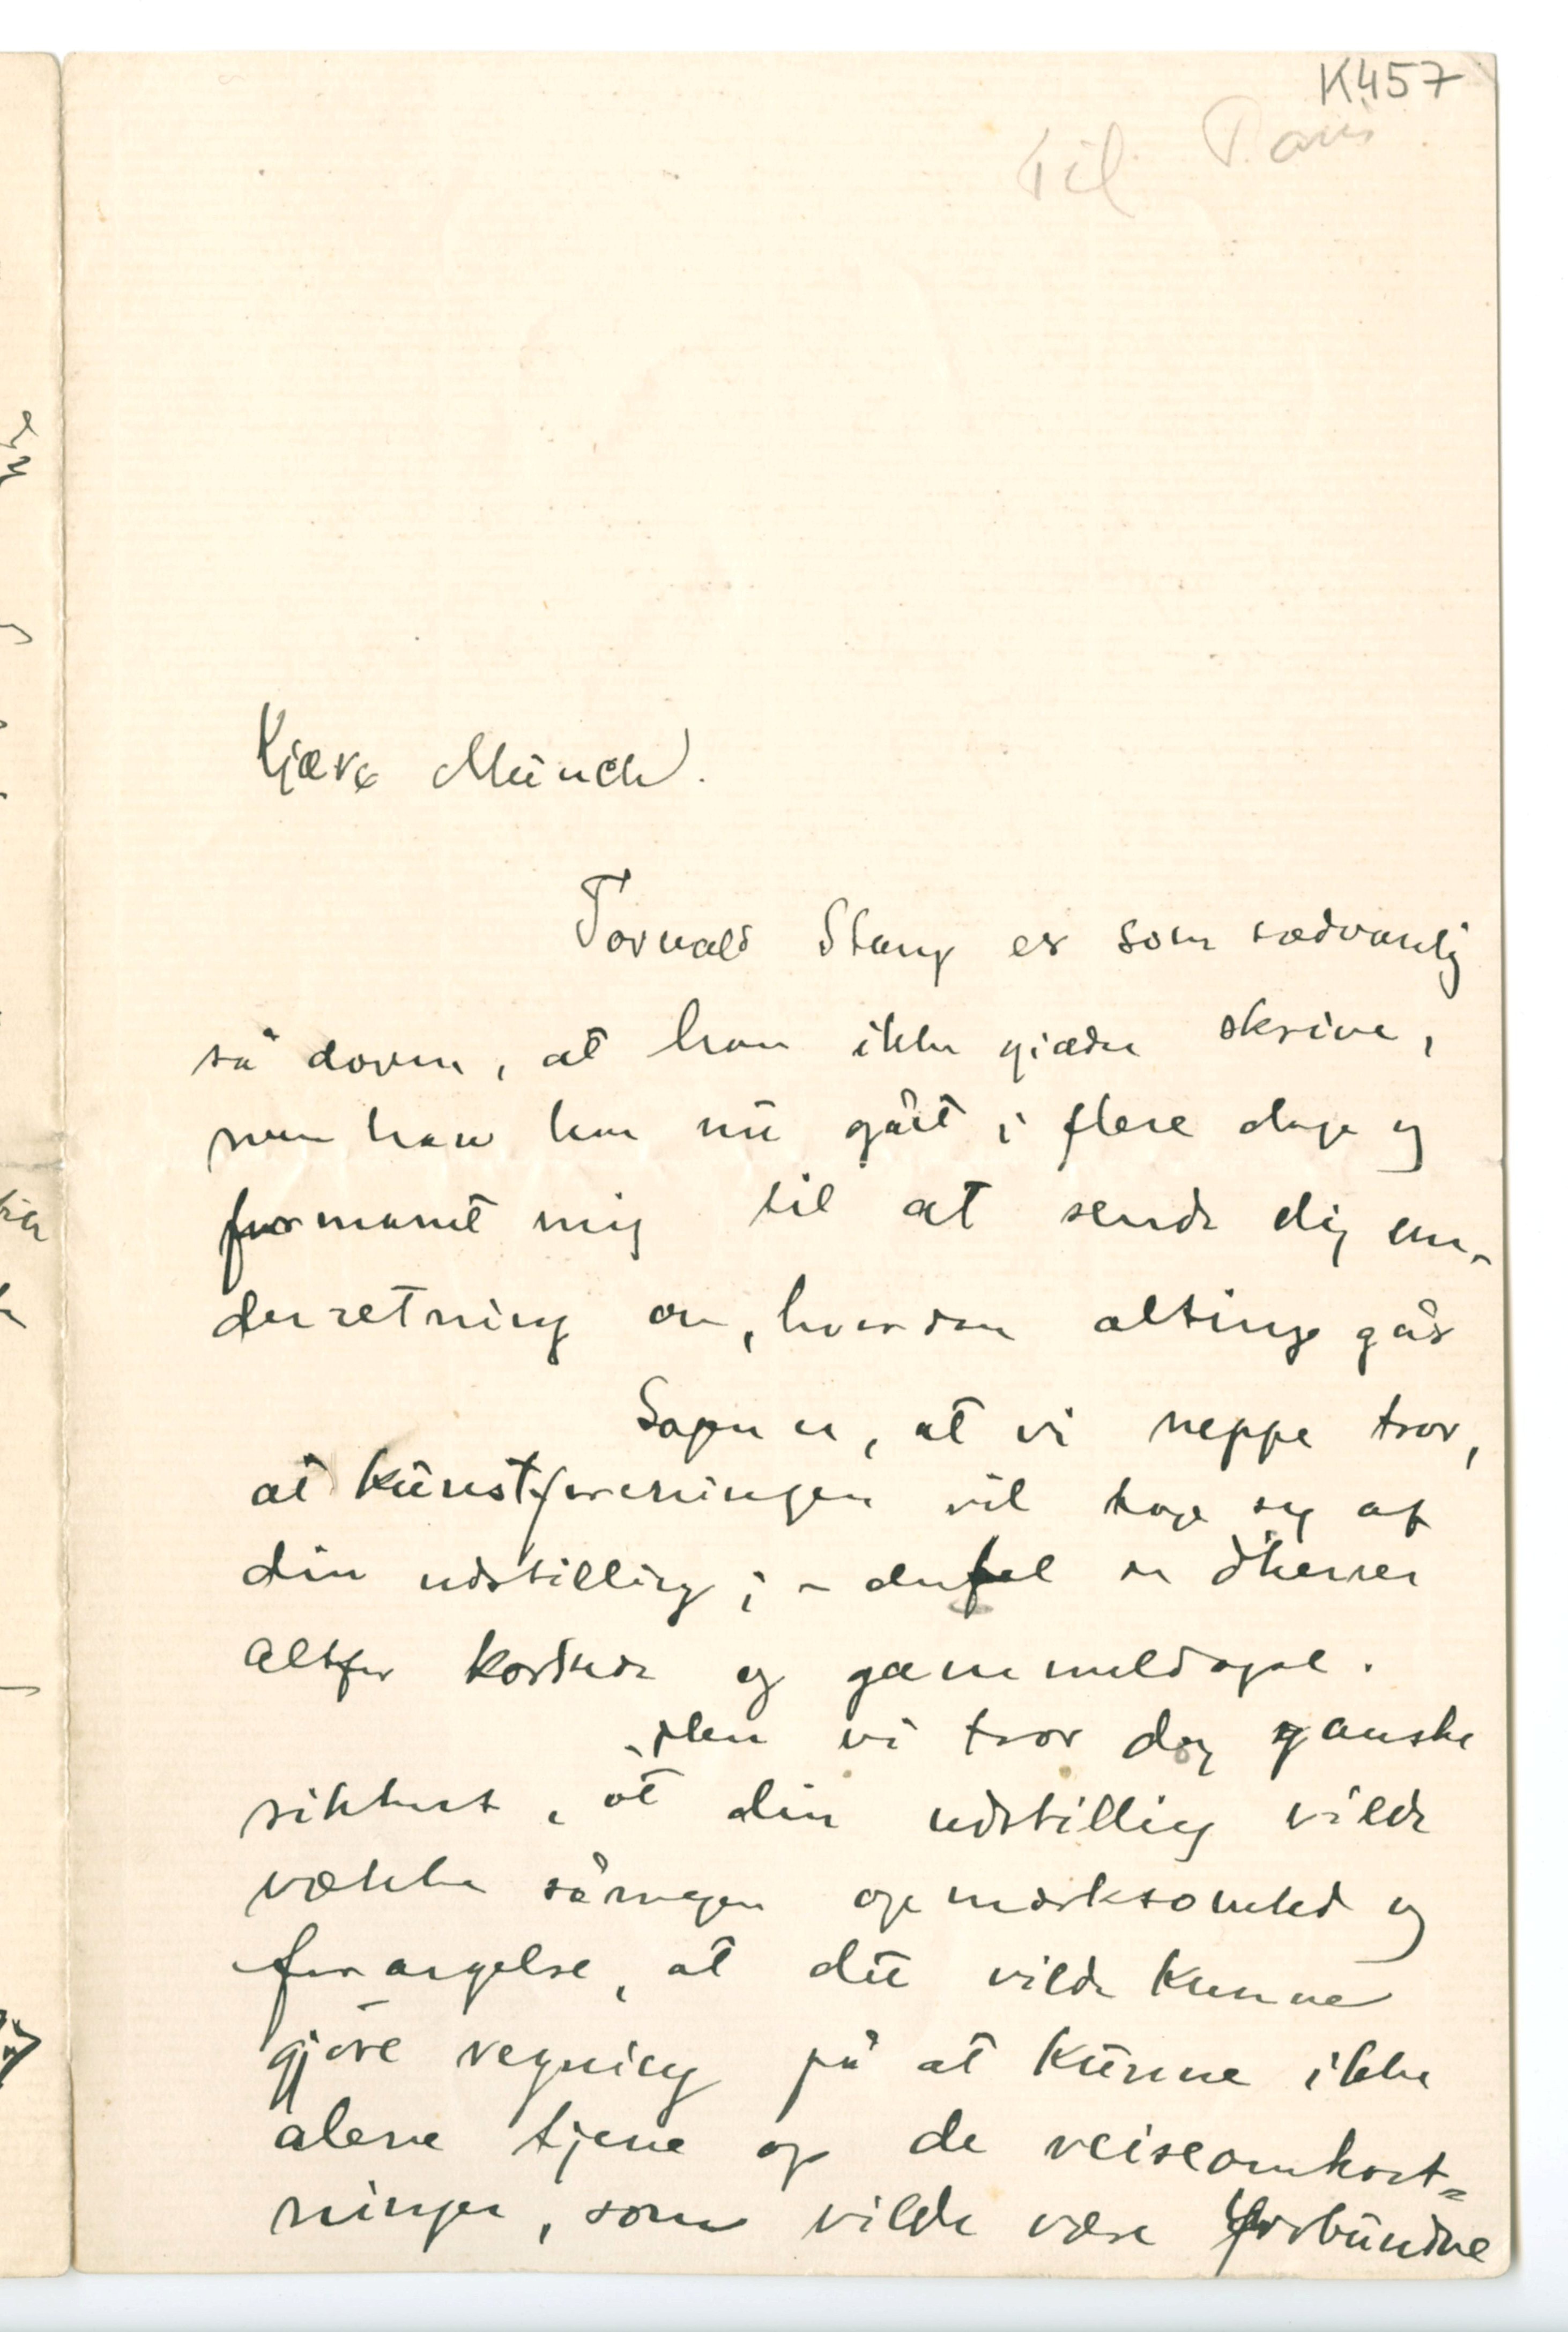 K457
Til Paris
Kjære Munch.
Torvald Stang er som sædvanlig
så doven, at han ikke gider skrive,
men han har nu gåt i flere dage og
formanet mig til at sende dig un-
derretning om, hvordan alting går
Sagen er, at vi neppe tror,
at Kunstforeningen vil tage sig af
din udstilling; – dertil er d'herrer
altfor og gammeldagse.
Men vi tror dog ganske
sikkert, at din udstilling vilde
vække såmegen opmærksomhed og
forargelse, at du vilde kunne
gjøre regning på at kunne ikke
alene tjene op de reiseomkost=
ninger, som vilde være forbundne